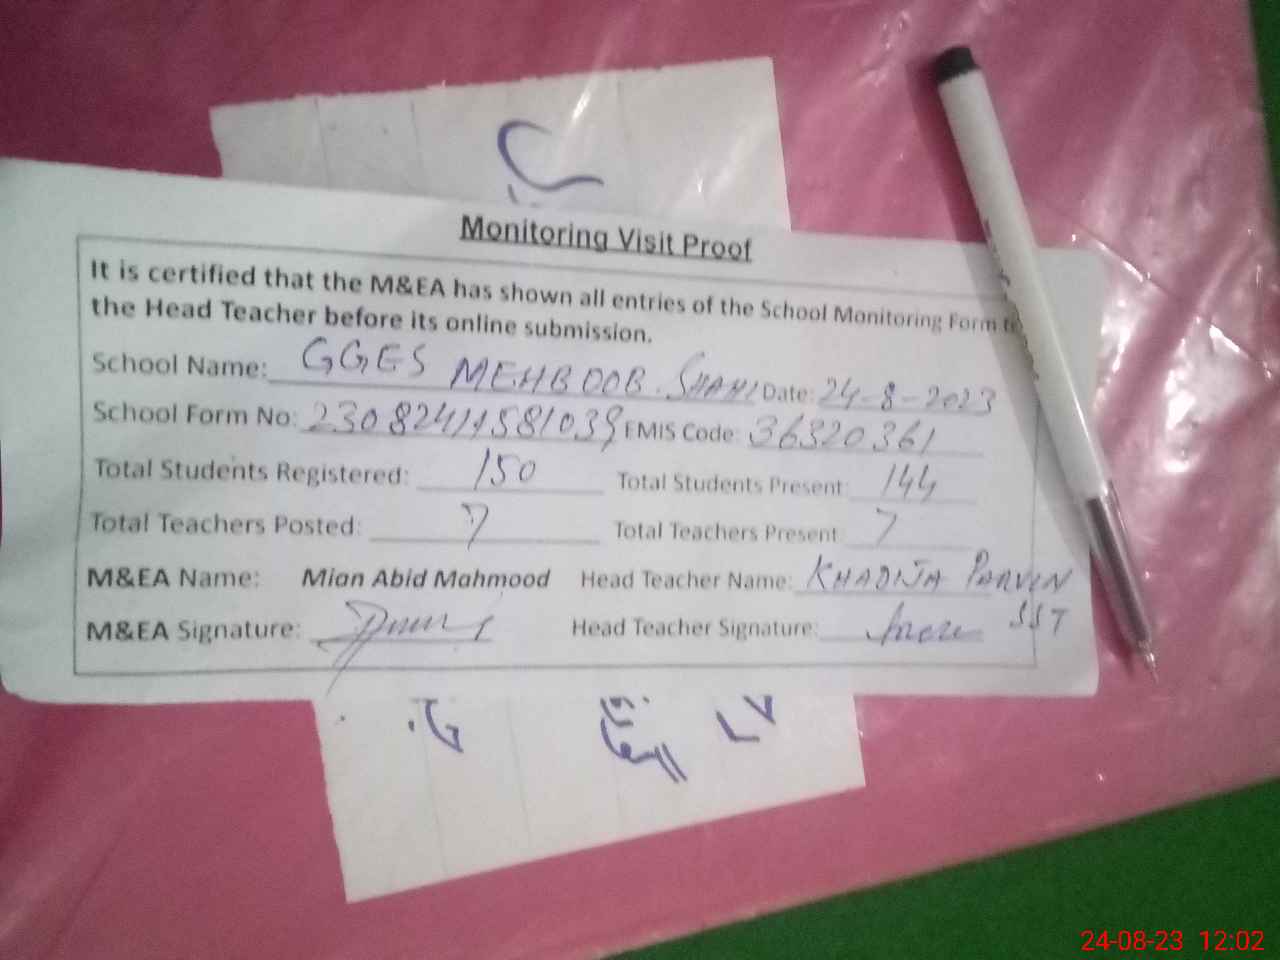 Monitoring Visit Proof
It is certified that the M&EA has shown all entries of the School Monitoring Form
the Head Teacher before its online submission.
School Name: GGES MEHBOOB SHAHI Date: 24-8-2023
School Form No: EMIS Code: 36320361
Total Students Registered: 150 Total Students Present: 144
Total Teachers Posted: 7 Total Teachers Present: 7
M&EA Name: Mian Abid Mahmood Head Teacher Name: KHADIJA PARVEN
M&EA Signature: Head Teacher Signature: SST
24-08-23 12:02